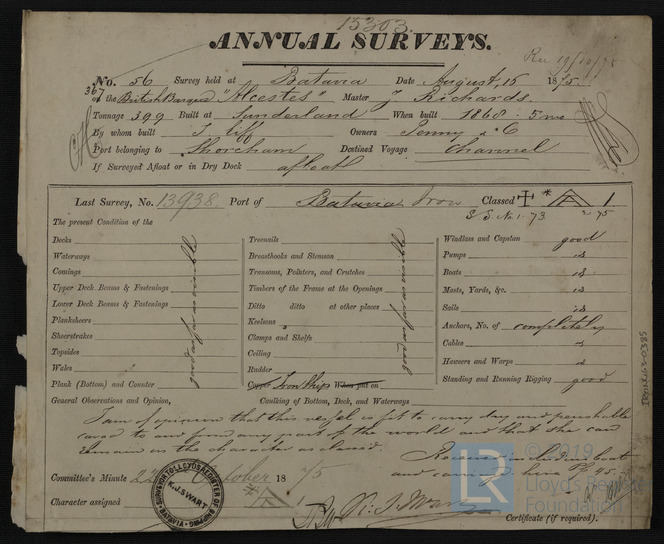 15303.
ANNUAL SURVEYS.
Rec 19/10/75
No. 56 Survey held at Batavia Date August, 15 1875.
367 of the British Barque "Alcestes" Master J Richards.
Tonnage 399 Built at Sunderland When built 1868 : 5 mo
By whom built T. Iliff Owners Penny & C
Port belonging to Shoreham Destined Voyage Channel
If Surveyed Afloat or in Dry Dock afloat
Last Survey, No. 13938 Port of Batavia Iron Classed A 1
S. S. No. 1. 73 2 75
The present Condition of the
Decks
Waterways
Comings
Upper Deck Beams & Fastenings
Lower Deck Beams & Fastenings
Planksheers
Sheerstrakes
Topsides
Wales
Plank (Bottom) and Counter
good as far as visible
Treenails
Breasthooks and Stemson
Transoms, Pointers, and Crutches
Timbers of the Frame at the Openings
Ditto ditto at other places
Keelsons
Clamps and Shelfs
Ceiling
Rudder
Copper Iron Ships When put on
good as far as visible
Windlass and Capstan good
Pumps id
Boats id
Masts, Yards, &c. id
Sails id
Anchors, No. of completely
Cables id
Hawsers and Warps id
Standing and Running Rigging good
General Observations and Opinion, Caulking of Bottom, Deck, and Waterways
I am of opinion that this vessel is fit to carry dry and perishable
cargo to and from any part of the world and that she can
remain in the character as classed.
Received including boat
and carriage hire 45.-
Committee's Minute 22 October 1875
Character assigned A 1
SURVEYOR TO LLOYDS REGISTER OF SHIPPING
K.J. SWART
BATAVIA
Certificate (if required).
IRON463-0385
LR
© 2019
Lloyd's Register
Foundation